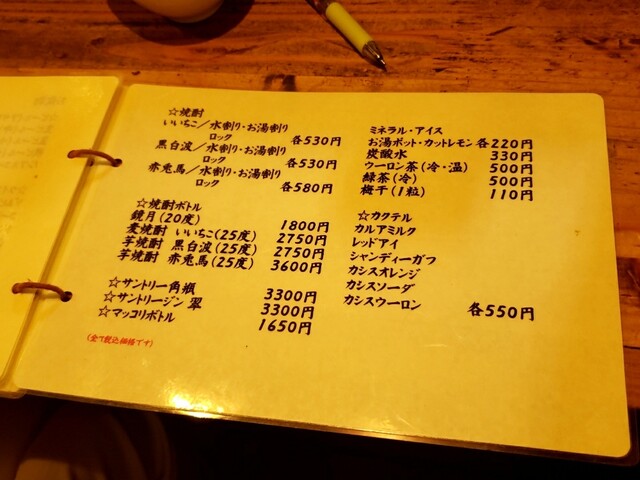 ☆焼酎
いいちこ/水割り・お湯割り
ロック 各530円
黒白波/水割り・お湯割り
ロック 各530円
赤兎馬/水割り・お湯割り
ロック 各580円
☆焼酎ボトル
鏡月(20度) 1800円
麦焼酎 いいちこ(25度) 2750円
芋焼酎 黒白波(25度) 2750円
芋焼酎 赤兎馬(25度) 3600円
☆サントリー角瓶 3300円
☆サントリージン 翠 3300円
☆マッコリボトル 1650円
(全て税込価格です)
ミネラル・アイス
お湯ポット・カットレモン 各220円
炭酸水 330円
ウーロン茶(冷・温) 500円
緑茶(冷) 500円
梅干(1粒) 110円
☆カクテル
カルアミルク
レッドアイ
シャンディーガフ
カシスオレンジ
カシスソーダ
カシスウーロン 各550円